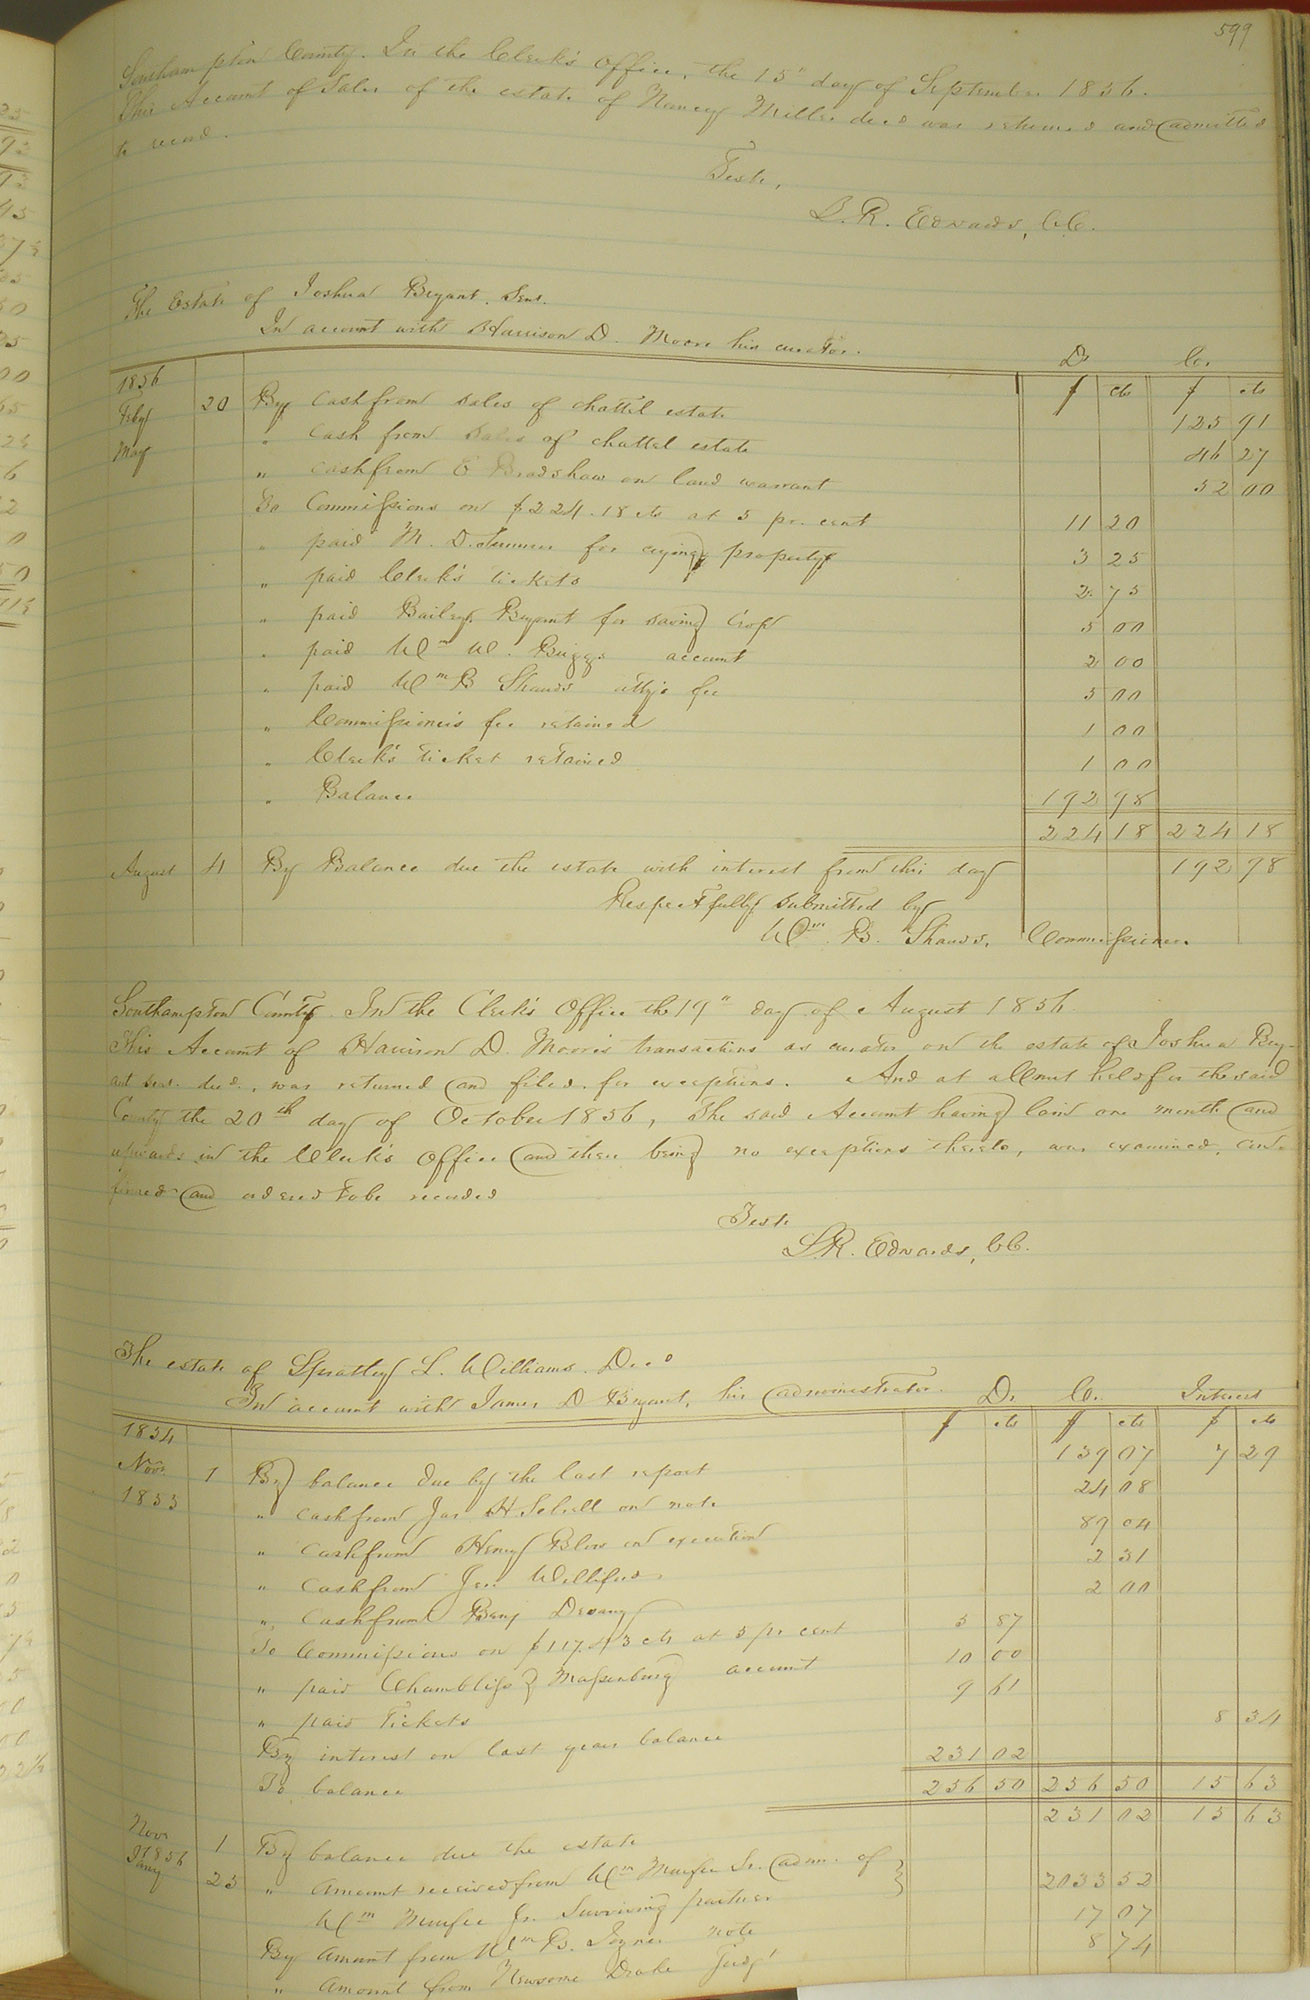 599
Southampton County. In the Clerk's Office, the 15" day of September 1856.
This Account of Sales of the estate of Nancy Miller decd was returned and admitted
to record.
Teste,
L. R. Edwards, CC.
The Estate of Joshua Bryant, Senr.
In account with Harrison D. Moore his curator.
Dr Cr.
1856 $ cts $ cts
Feby 20 By cash from sales of chattel estate 125 91
May " cash from sales of chattel estate 46 27
" cash from E Bradshaw on land warrant 52 00
To Commissions on $224.18 cts at 5 pr. cent 11 20
" paid M. D. Turner for crying property 3 25
" paid Clerk's tickets 2 75
" paid Bailey Bryant for saving crop 5 00
" paid Wm W. Briggs account 2 00
" paid Wm B Shands atty's fee 5 00
" Commissioner's fee retained 1 00
" Clerk's ticket retained 1 00
" Balance 192 98
224 18 224 18
August 4 By Balance due the estate with interest from this day 192 98
Respectfully submitted by
Wm. B. Shands, Commissioner.
Southampton County. In the Clerk's Office the 19" day of August 1856.
This Account of Harrison D. Moore's transactions as curator on the estate of Joshua Bry-
ant Senr. decd., was returned and filed for exceptions. And at a Court held for the said
County the 20th day of October 1856, The said Account having lain one month and
upwards in the Clerk's Office and there being no exceptions thereto, was examined, con-
firmed and ordered to be recorded
Teste
L. R. Edwards, CC.
The estate of Spratley L. Williams Decd
In account with James D Bryant, his administrator.
Dr. Cr. Interest
1854 $ cts $ cts $ cts
Nov. 1 By balance due by the last report 139 07 7 29
1855 " cash from Jas H. on note 24 08
" cash from Henry Blow on execution 89 04
" cash from Williford 2 31
" cash from Benj Devany 2 00
To Commissions on $117.43 cts at 5 pr cent 5 87
" paid Chambliss & Massenburg account 10 00
" paid Tickets 9 61
By interest on last years balance 8 34
To balance 231 02
256 50 256 50 15 63
Nov. 1 By balance due the estate 231 02 15 63
1856
Jany 23 " Amount received from Wm Murfee Sr. adm. of
Wm Murfee Jr. Surviving partner 2033 52
By Amount from Wm B. Joyner note 17 07
" Amount from Newsome Drake Judgt 8 74